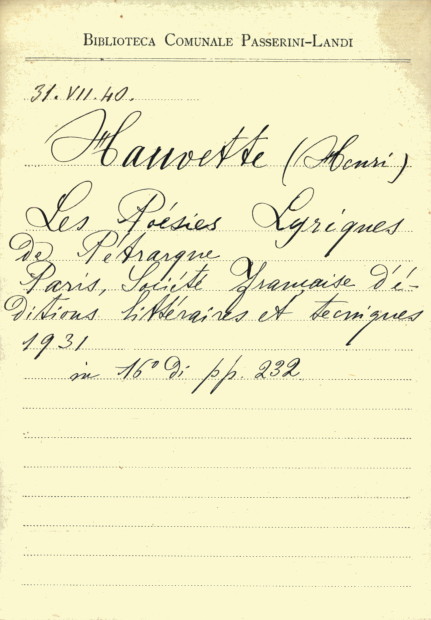 BIBLIOTECA COMUNALE PASSERINI-LANDI
31.VII.40.
Hauvette (Henri)
Les Poésies Lyriques
de Pétrarque
Paris, Société Française d'é-
ditions littéraires et tecniques
1931
in 16° di pp. 232